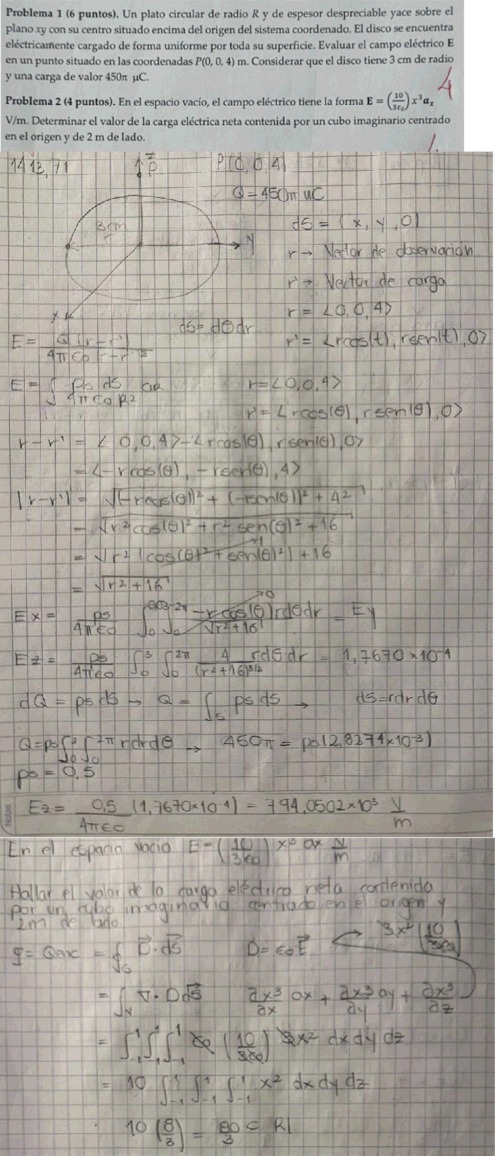 Problema 1 (6 puntos). Un plato circular de radio R y de espesor despreciable yace sobre el
plano xy con su centro situado encima del origen del sistema coordenado. El disco se encuentra
eléctricamente cargado de forma uniforme por toda su superficie. Evaluar el campo eléctrico E
en un punto situado en las coordenadas P(0, 0, 4) m. Considerar que el disco tiene 3 cm de radio
y una carga de valor 450π μC.
4
Problema 2 (4 puntos). En el espacio vacío, el campo eléctrico tiene la forma E = (10/3ε₀) x³ aₓ
V/m. Determinar el valor de la carga eléctrica neta contenida por un cubo imaginario centrado
en el origen y de 2 m de lado.
1413,71
P(0,0,4)
Q=450π uC
3cm
Y
X
dS = (x, y, 0)
r → Vector de observación
r' → Vector de carga
r = <0,0,4>
r' = <rcos(t), rsen(t), 0>
dS = dθdr
E = Q(r-r') / 4πε0|r-r'|³
E = ∫ ρs ds / 4πε0R² aR
r = <0,0,4>
r' = <rcos(θ), rsen(θ), 0>
r-r' = <0,0,4> - <rcos(θ), rsen(θ), 0>
= <-rcos(θ), -rsen(θ), 4>
|r-r'| = √(-rcos(θ))² + (-rsen(θ))² + 4²
= √r²cos(θ)² + r²sen(θ)² + 16
= √r²(cos(θ)² + sen(θ)²) + 16
= √r²+16
Ex = ρs/4πε0 ∫₀^0,03 ∫₀^2π -rcos(θ)rdθdr / √r²+16 = Ey
Ez = ρs/4πε0 ∫₀^3 ∫₀^2π 4 rdθdr / (r²+16)^3/2 = 1,7670×10⁻⁴
dQ = ρs ds → Q = ∫s ρs ds → dS = rdrdθ
Q = ρs∫₀∫₀^2π rdrdθ → 450π = ρs(2,8274×10⁻³)
ρs = 0,5
Ez = 0,5/4πε0 (1,7670×10⁻⁴) = 794,0502×10³ V/m
En el espacio vacio E = (10/3ε0) x³ ax V/m
Hallar el valor de la carga eléctrica neta contenida
por un cubo imaginario centrado en el origen y
2m de lado
3x² (10/3ε0)
q = Qenc = ∮s D·ds D = ε0E
= ∫v ∇·D ds ∂x³/∂x ax + ∂x³/∂y ay + ∂x³/∂z
= ∫₋₁¹∫₋₁¹∫₋₁¹ ε0 (10/3ε0) 3x² dx dy dz
= 10 ∫₋₁¹ ∫₋₁¹ ∫₋₁¹ x² dx dy dz
10 (8/3) = 80/3 C R/